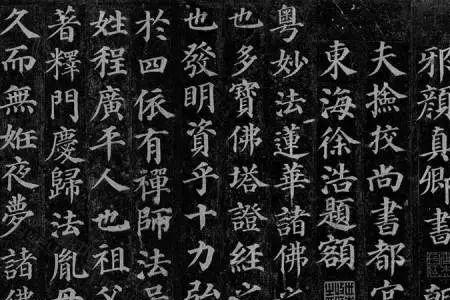 邪顏真卿書
夫撿挍尚書都官
東海徐浩題額
粵妙法蓮華諸佛之
也多寶佛塔證經之
也發明資乎十力弘
於四依有禪師法号
姓程廣平人也祖父
著釋門慶歸法胤母
久而無姙夜夢諸佛